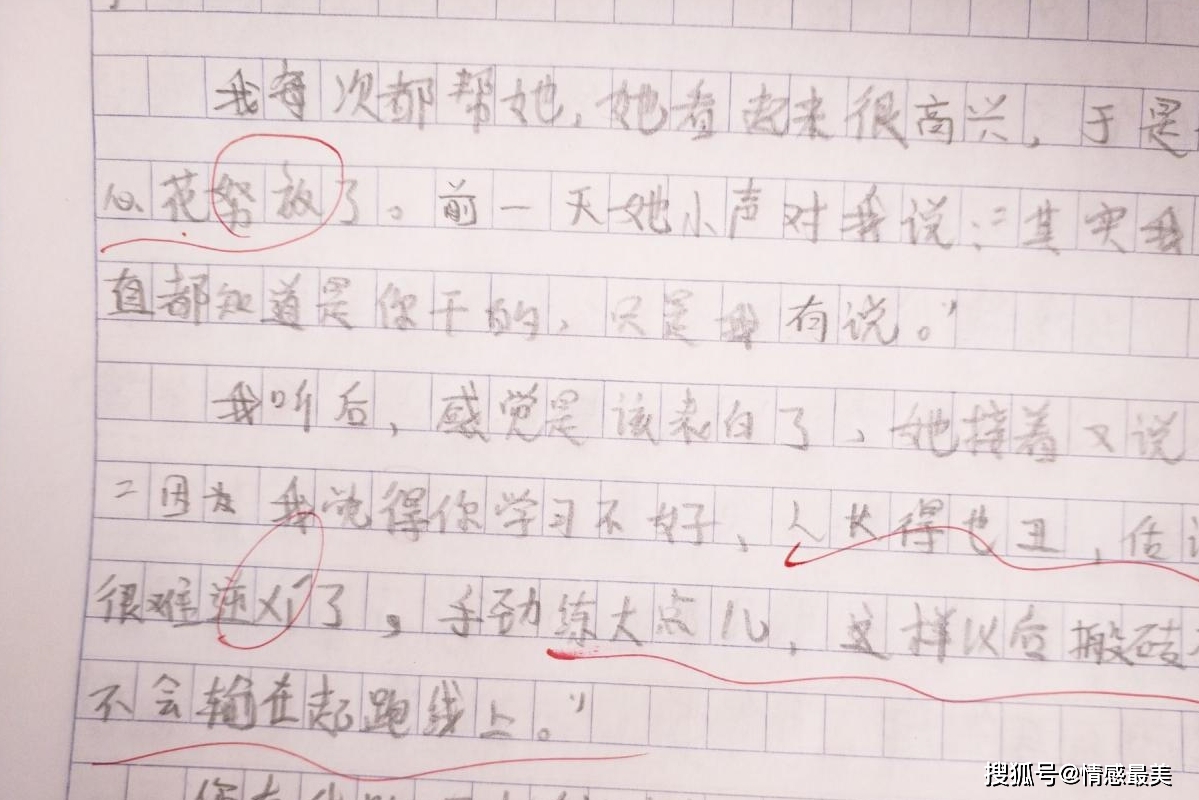 我每次都帮她，她看起来很高兴，于是
心花努放了。前一天她小声对我说：“其实我
直都知道是你干的，只是我有说。”
我听后，感觉是该表白了，她接着又说
“因为我觉得你学习不好，人长得也丑，估
很难逆了，手劲练大点儿，这样以后搬砖
不会输在起跑线上。”
搜狐号@情感最美